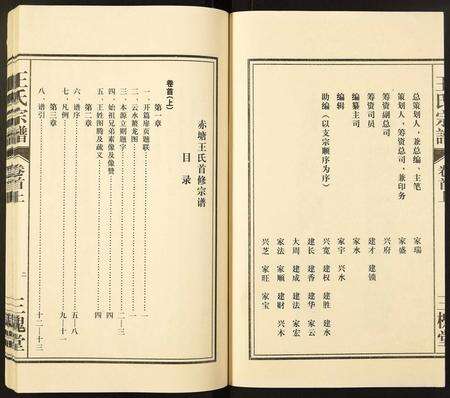 王氏宗谱
卷首上
三槐堂
总策划人、兼总编、主笔 家瑞
策划人、筹资总司、兼印务 家盛
筹资副总司 兴府
筹资司 建才 建镇
编纂主司 家水
编辑 家宇 兴水
助编（以支宗顺序为序） 兴宽 建权 建胜 建水
建长 建香 建华 家云
大周 建成 建法 家宏
家法 家顺 建财 兴木
兴芝 家旺 家宝
赤塘王氏首修宗谱
目录
卷首(上)
第一章
一、开篇扉页题联 一
二、云水龙图 一
三、本源立则题字 二—三
四、始祖兄弟素像及像赞 四
五、王姓图腾及疏义 四
第二章
六、谱序 五—八
七、凡例 九—十一
第三章
八、谱引 十二—十三
王氏宗谱
卷首上
二
三槐堂